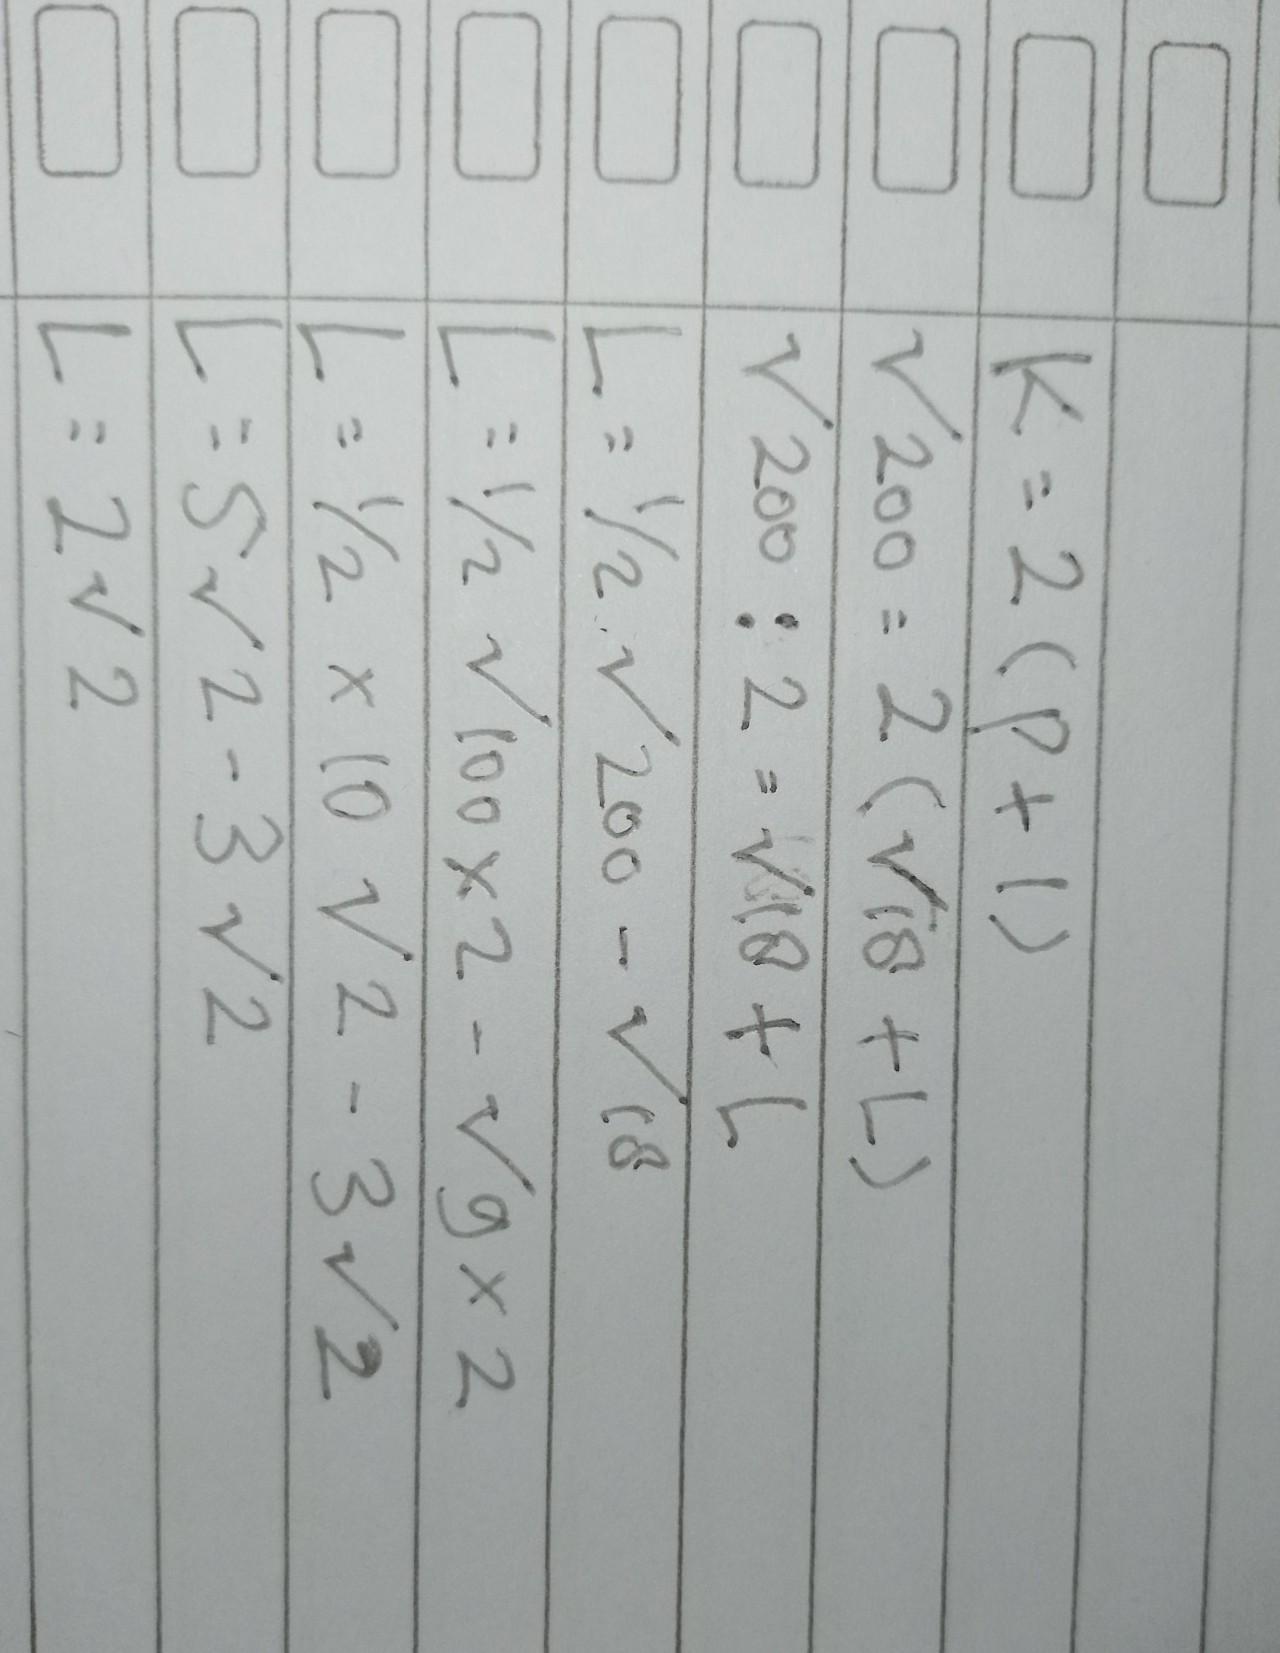 K = 2 (p + l)
√200 = 2 (√18 + L)
√200 : 2 = √18 + L
L = 1/2 . √200 - √18
L = 1/2 √100 x 2 - √9 x 2
L = 1/2 x 10 √2 - 3 √2
L = 5 √2 - 3 √2
L = 2 √2